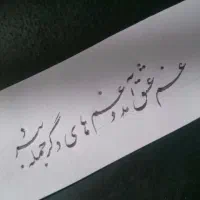 غم عشق آمد و غم های دگر جمله ببرد